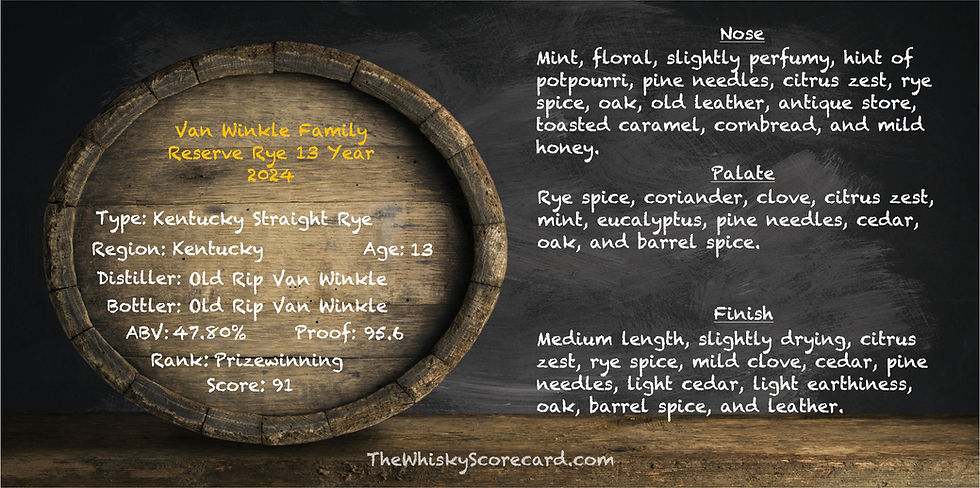 Van Winkle Family
Reserve Rye 13 Year
2024
Type: Kentucky Straight Rye
Region: Kentucky Age: 13
Distiller: Old Rip Van Winkle
Bottler: Old Rip Van Winkle
ABV: 47.80% Proof: 95.6
Rank: Prizewinning
Score: 91
Nose
Mint, floral, slightly perfumy, hint of
potpourri, pine needles, citrus zest, rye
spice, oak, old leather, antique store,
toasted caramel, cornbread, and mild
honey.
Palate
Rye spice, coriander, clove, citrus zest,
mint, eucalyptus, pine needles, cedar,
oak, and barrel spice.
Finish
Medium length, slightly drying, citrus
zest, rye spice, mild clove, cedar, pine
needles, light cedar, light earthiness,
oak, barrel spice, and leather.
TheWhiskyScorecard.com